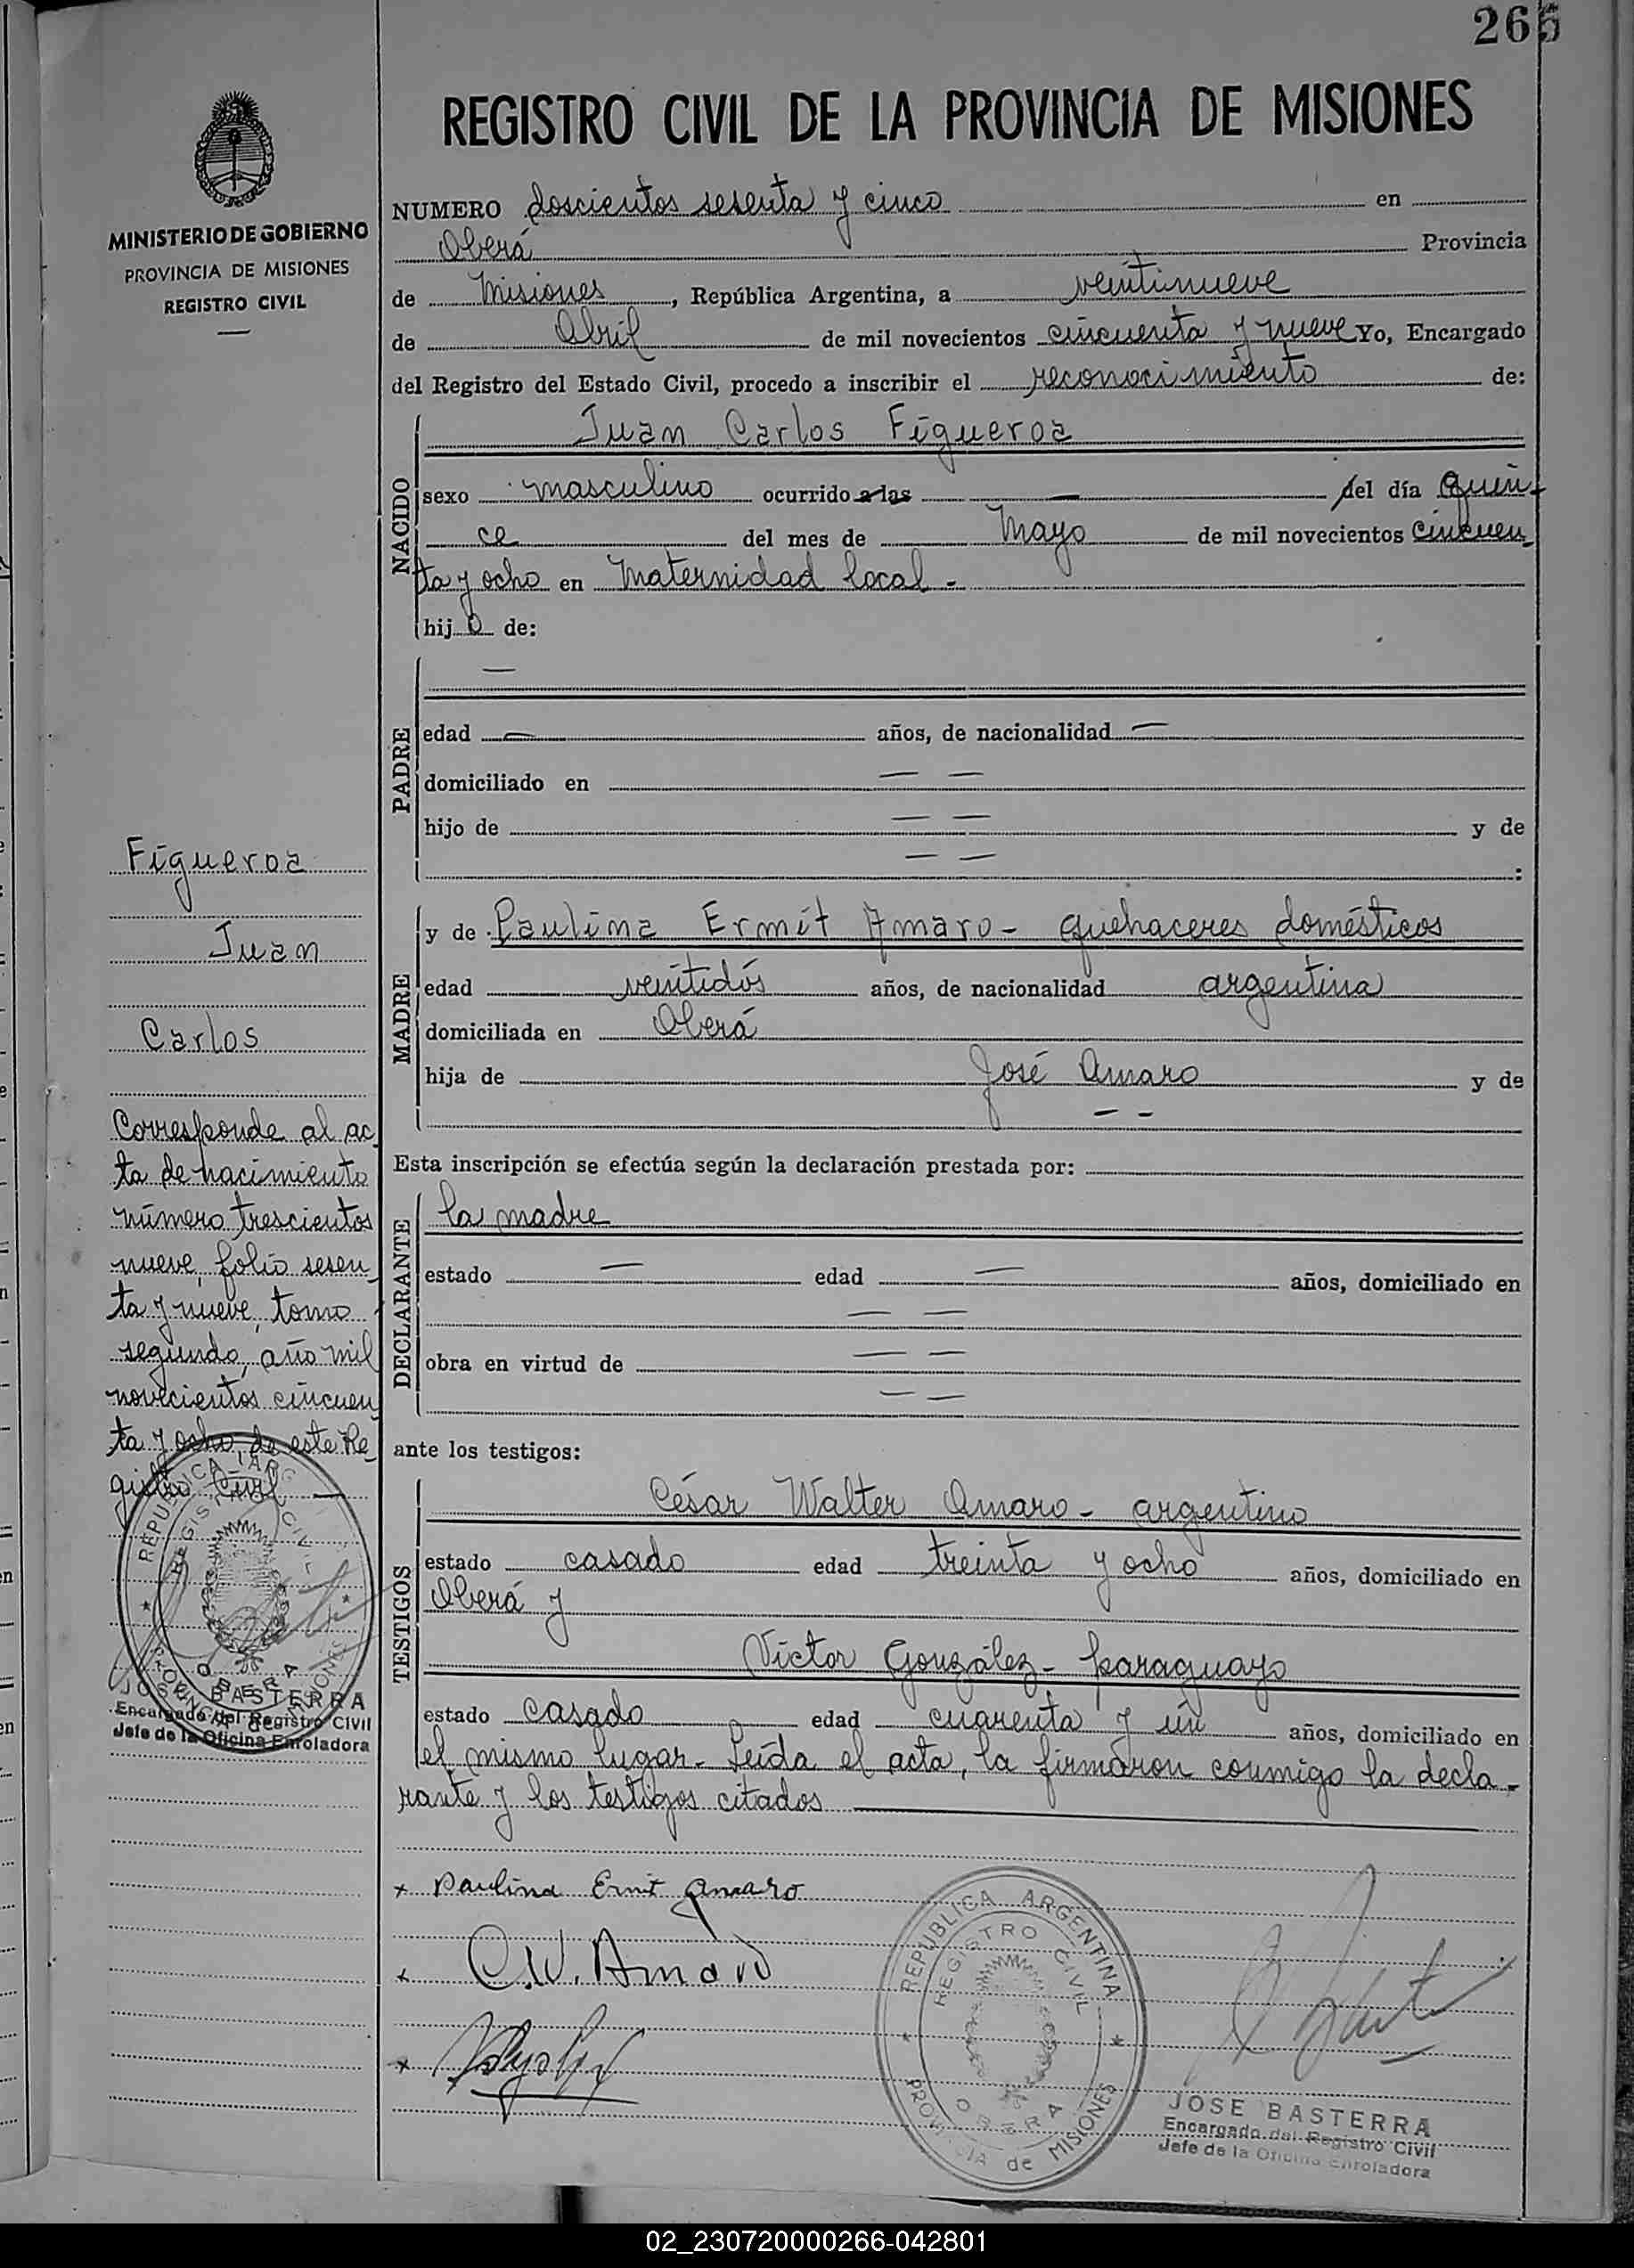 265
REGISTRO CIVIL DE LA PROVINCIA DE MISIONES
MINISTERIO DE GOBIERNO
PROVINCIA DE MISIONES
REGISTRO CIVIL
NUMERO doscientos sesenta y cinco en
Oberá Provincia
de Misiones, República Argentina, a veintinueve
de Abril de mil novecientos cincuenta y nueve Yo, Encargado
del Registro del Estado Civil, procedo a inscribir el reconocimiento de:
NACIDO
Juan Carlos Figueroa
sexo masculino ocurrido a las — del día quin-
ce del mes de Mayo de mil novecientos cincuen-
ta y ocho en Maternidad local -
hijo de:
PADRE
—
edad — años, de nacionalidad —
domiciliado en — —
hijo de — — y de
— — :
MADRE
y de Paulina Ermit Amaro - quehaceres domésticos
edad veintidós años, de nacionalidad argentina
domiciliada en Oberá
hija de José Amaro y de
- -
Esta inscripción se efectúa según la declaración prestada por:
DECLARANTE
la madre
estado — edad — años, domiciliado en
— —
obra en virtud de — —
— —
ante los testigos:
TESTIGOS
César Walter Amaro - argentino
estado casado edad treinta y ocho años, domiciliado en
Oberá y
Victor González - paraguayo
estado casado edad cuarenta y un años, domiciliado en
el mismo lugar - Leída el acta, la firmaron conmigo la decla-
rante y los testigos citados
x Paulina Ermit Amaro
x C.W. Amaro
x
REPUBLICA ARGENTINA
REGISTRO CIVIL
OBERA
PROVINCIA de MISIONES
JOSE BASTERRA
Encargado del Registro Civil
Jefe de la Oficina Enroladora
Figueroa
Juan
Carlos
Corresponde al ac-
ta de nacimiento
número trescientos
nueve, folio sesen-
ta y nueve, tomo
segundo, año mil
novecientos cincuen-
ta y ocho, de este Re-
gistro Civil —
REPUBLICA ARG
REGISTRO CIVIL
OBERA
PROVINCIA de MISIONES
JOSE BASTERRA
Encargado del Registro Civil
Jefe de la Oficina Enroladora
02_230720000266-042801